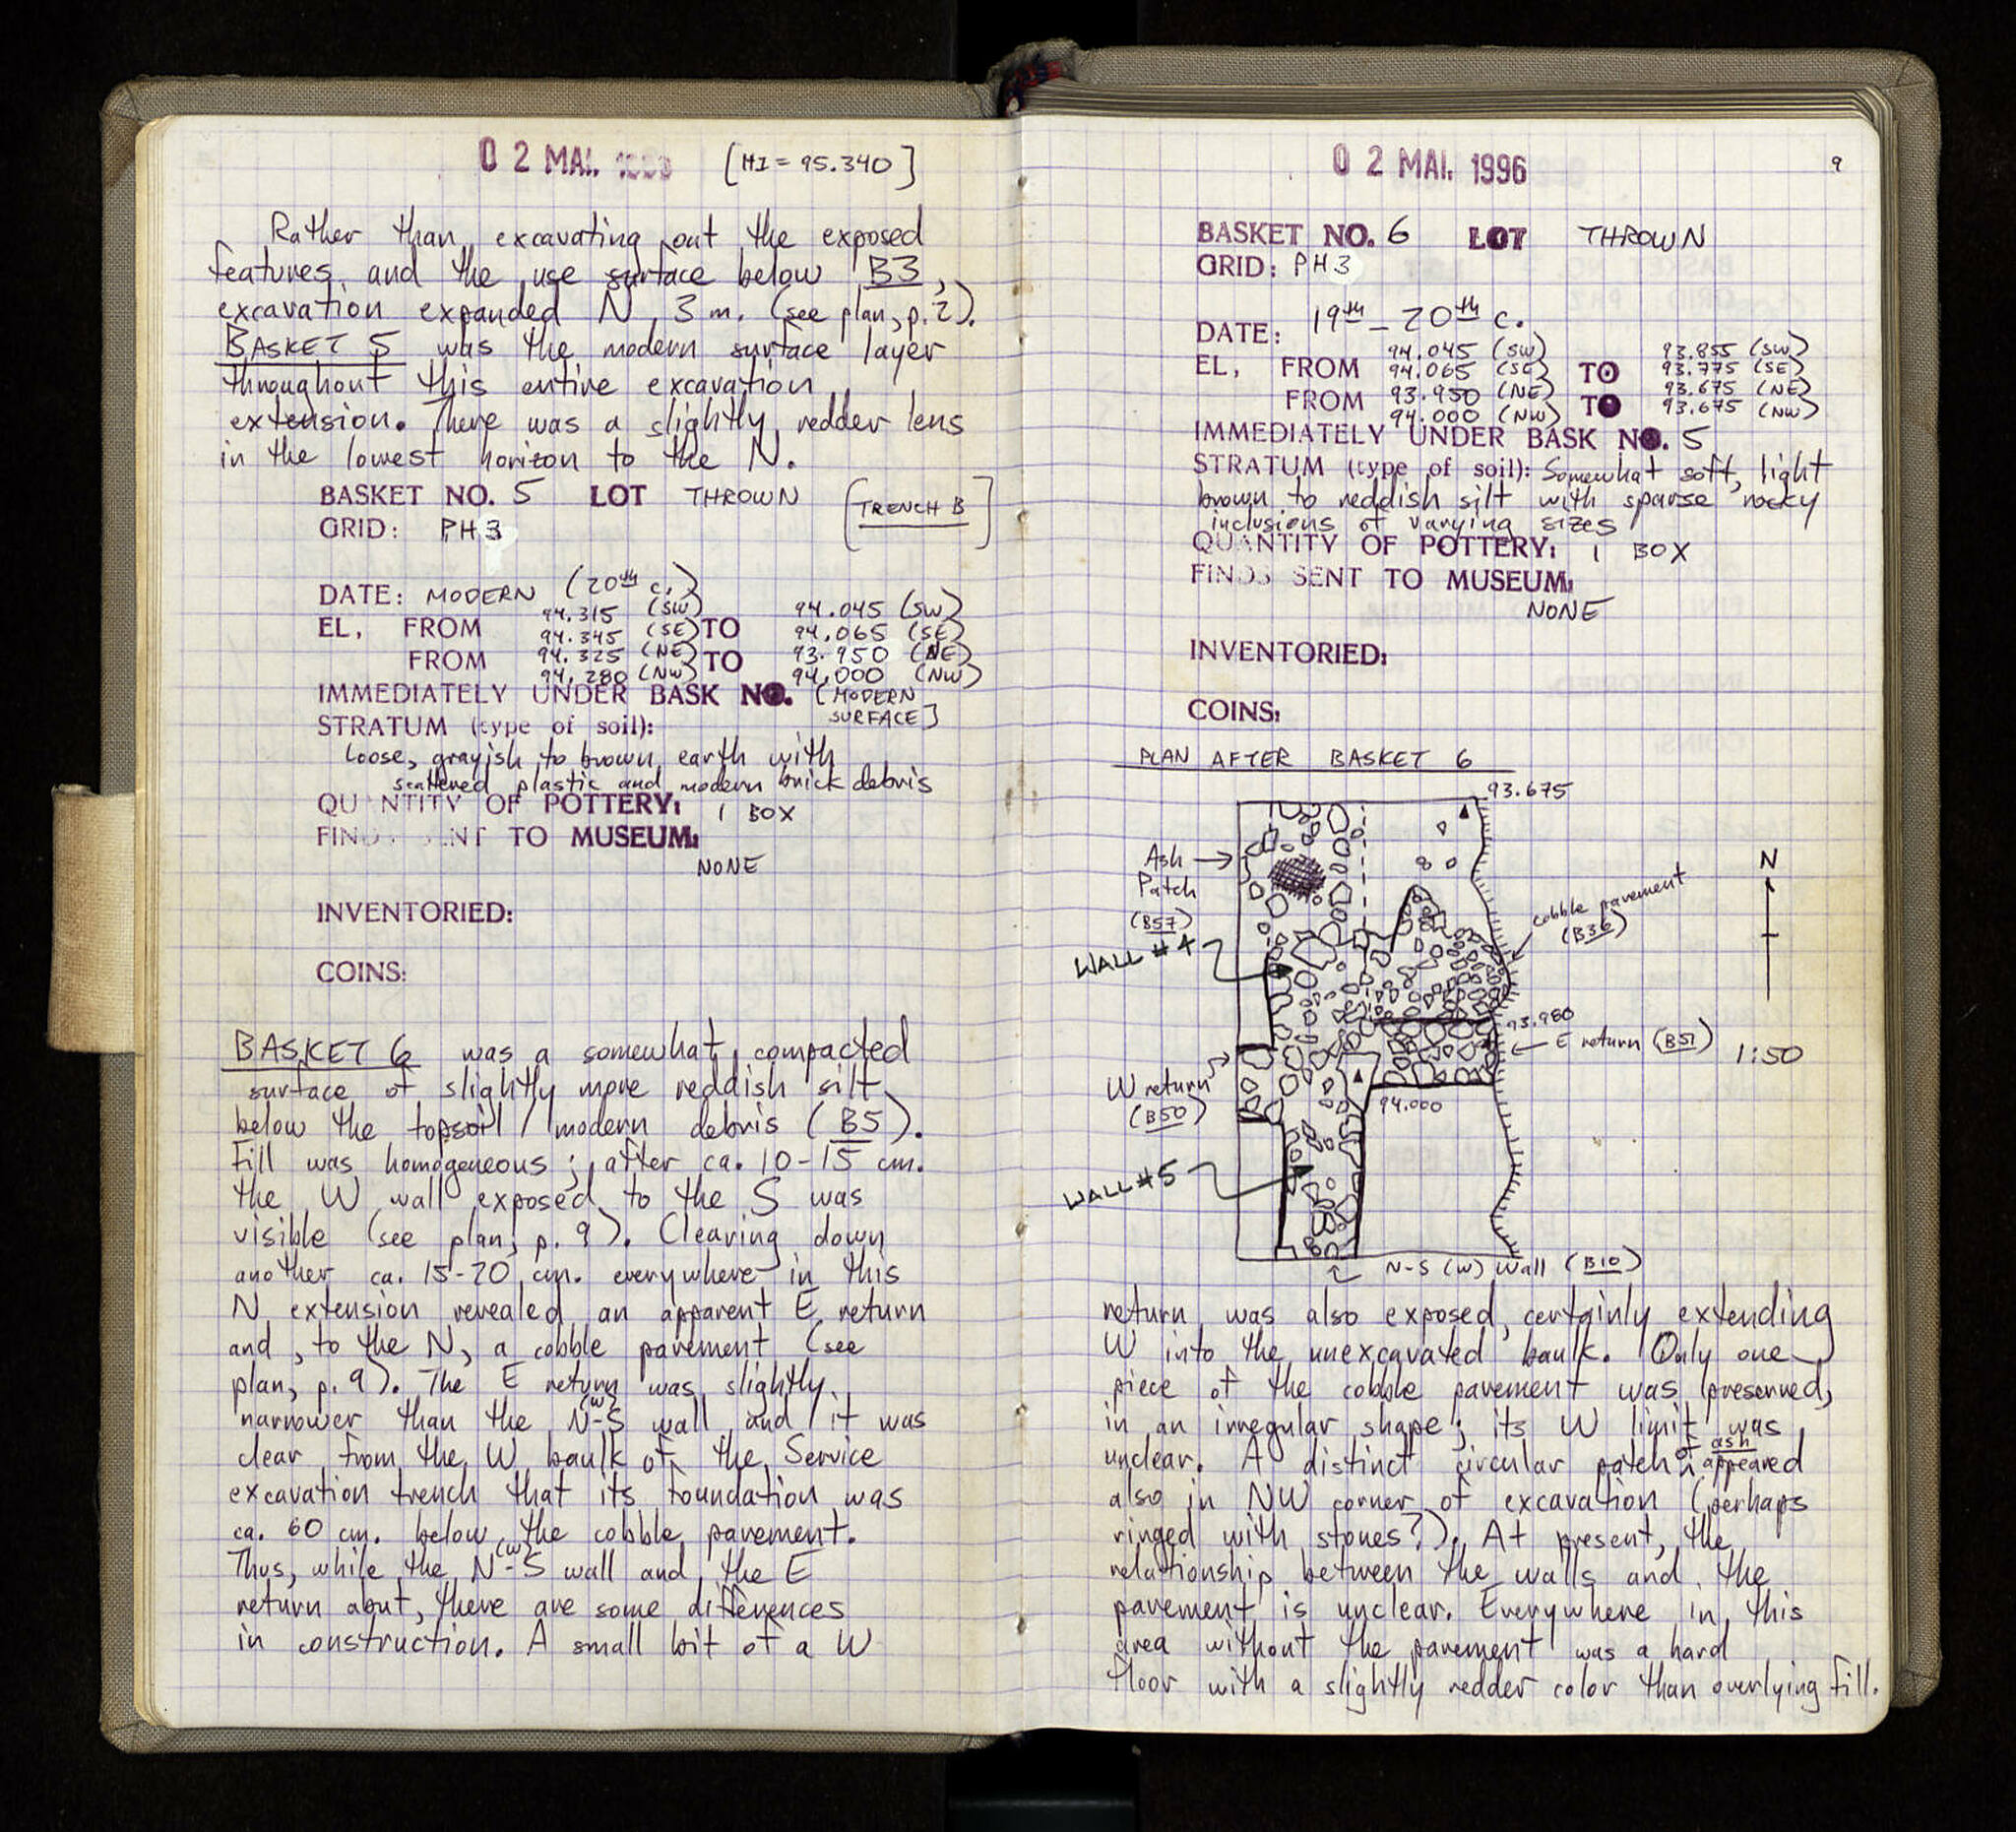 02 MAI. [HI = 95.340]
Rather than excavating out the exposed
features and the use surface below B3,
excavation expanded N 3 m. (see plan, p.2).
BASKET 5 was the modern surface layer
throughout this entire excavation
extension. There was a slightly redder lens
in the lowest horizon to the N.
BASKET NO. 5 LOT THROWN [TRENCH B]
GRID: PH3
DATE: MODERN (20th c.)
94.315 (SW) 94.045 (SW)
EL, FROM 94.345 (SE) TO 94.065 (SE)
FROM 94.325 (NE) TO 93.950 (NE)
94.280 (NW) 94.000 (NW)
IMMEDIATELY UNDER BASK NO. [MODERN
SURFACE]
STRATUM (type of soil):
Loose, grayish to brown earth with
scattered plastic and modern brick debris
QUANTITY OF POTTERY: 1 BOX
FINDS SENT TO MUSEUM:
NONE
INVENTORIED:
COINS:
BASKET 6 was a somewhat compacted
surface of slightly more reddish silt
below the topsoil / modern debris (B5).
Fill was homogeneous; after ca. 10-15 cm.
the W wall exposed to the S was
visible (see plan, p. 9). Clearing down
another ca. 15-20 cm. everywhere in this
N extension revealed an apparent E return
and, to the N, a cobble pavement (see
plan, p. 9). The E return was slightly
narrower than the N-S (W) wall and it was
clear from the W baulk of the Service
excavation trench that its foundation was
ca. 60 cm. below the cobble pavement.
Thus, while the N-S (W) wall and the E
return abut, there are some differences
in construction. A small bit of a W
02 MAI. 1996 9
BASKET NO. 6 LOT THROWN
GRID: PH3
DATE: 19th - 20th c.
94.045 (SW) 93.855 (SW)
EL, FROM 94.065 (SE) TO 93.775 (SE)
FROM 93.950 (NE) TO 93.675 (NE)
94.000 (NW) 93.675 (NW)
IMMEDIATELY UNDER BASK NO. 5
STRATUM (type of soil): Somewhat soft, light
brown to reddish silt with sparse rocky
inclusions of varying sizes
QUANTITY OF POTTERY: 1 BOX
FINDS SENT TO MUSEUM:
NONE
INVENTORIED:
COINS:
PLAN AFTER BASKET 6
93.675
Ash
Patch
(B57)
N
cobble pavement
(B36)
WALL #4
93.980
E return (B51)
1:50
W return
(B50)
94.000
WALL #5
N-S (W) Wall (B10)
return was also exposed, certainly extending
W into the unexcavated baulk. Only one
piece of the cobble pavement was preserved,
in an irregular shape; its W limit was
unclear. A distinct circular patch of ash appeared
also in NW corner of excavation (perhaps
ringed with stones?). At present, the
relationship between the walls and the
pavement is unclear. Everywhere in this
area without the pavement was a hard
floor with a slightly redder color than overlying fill.